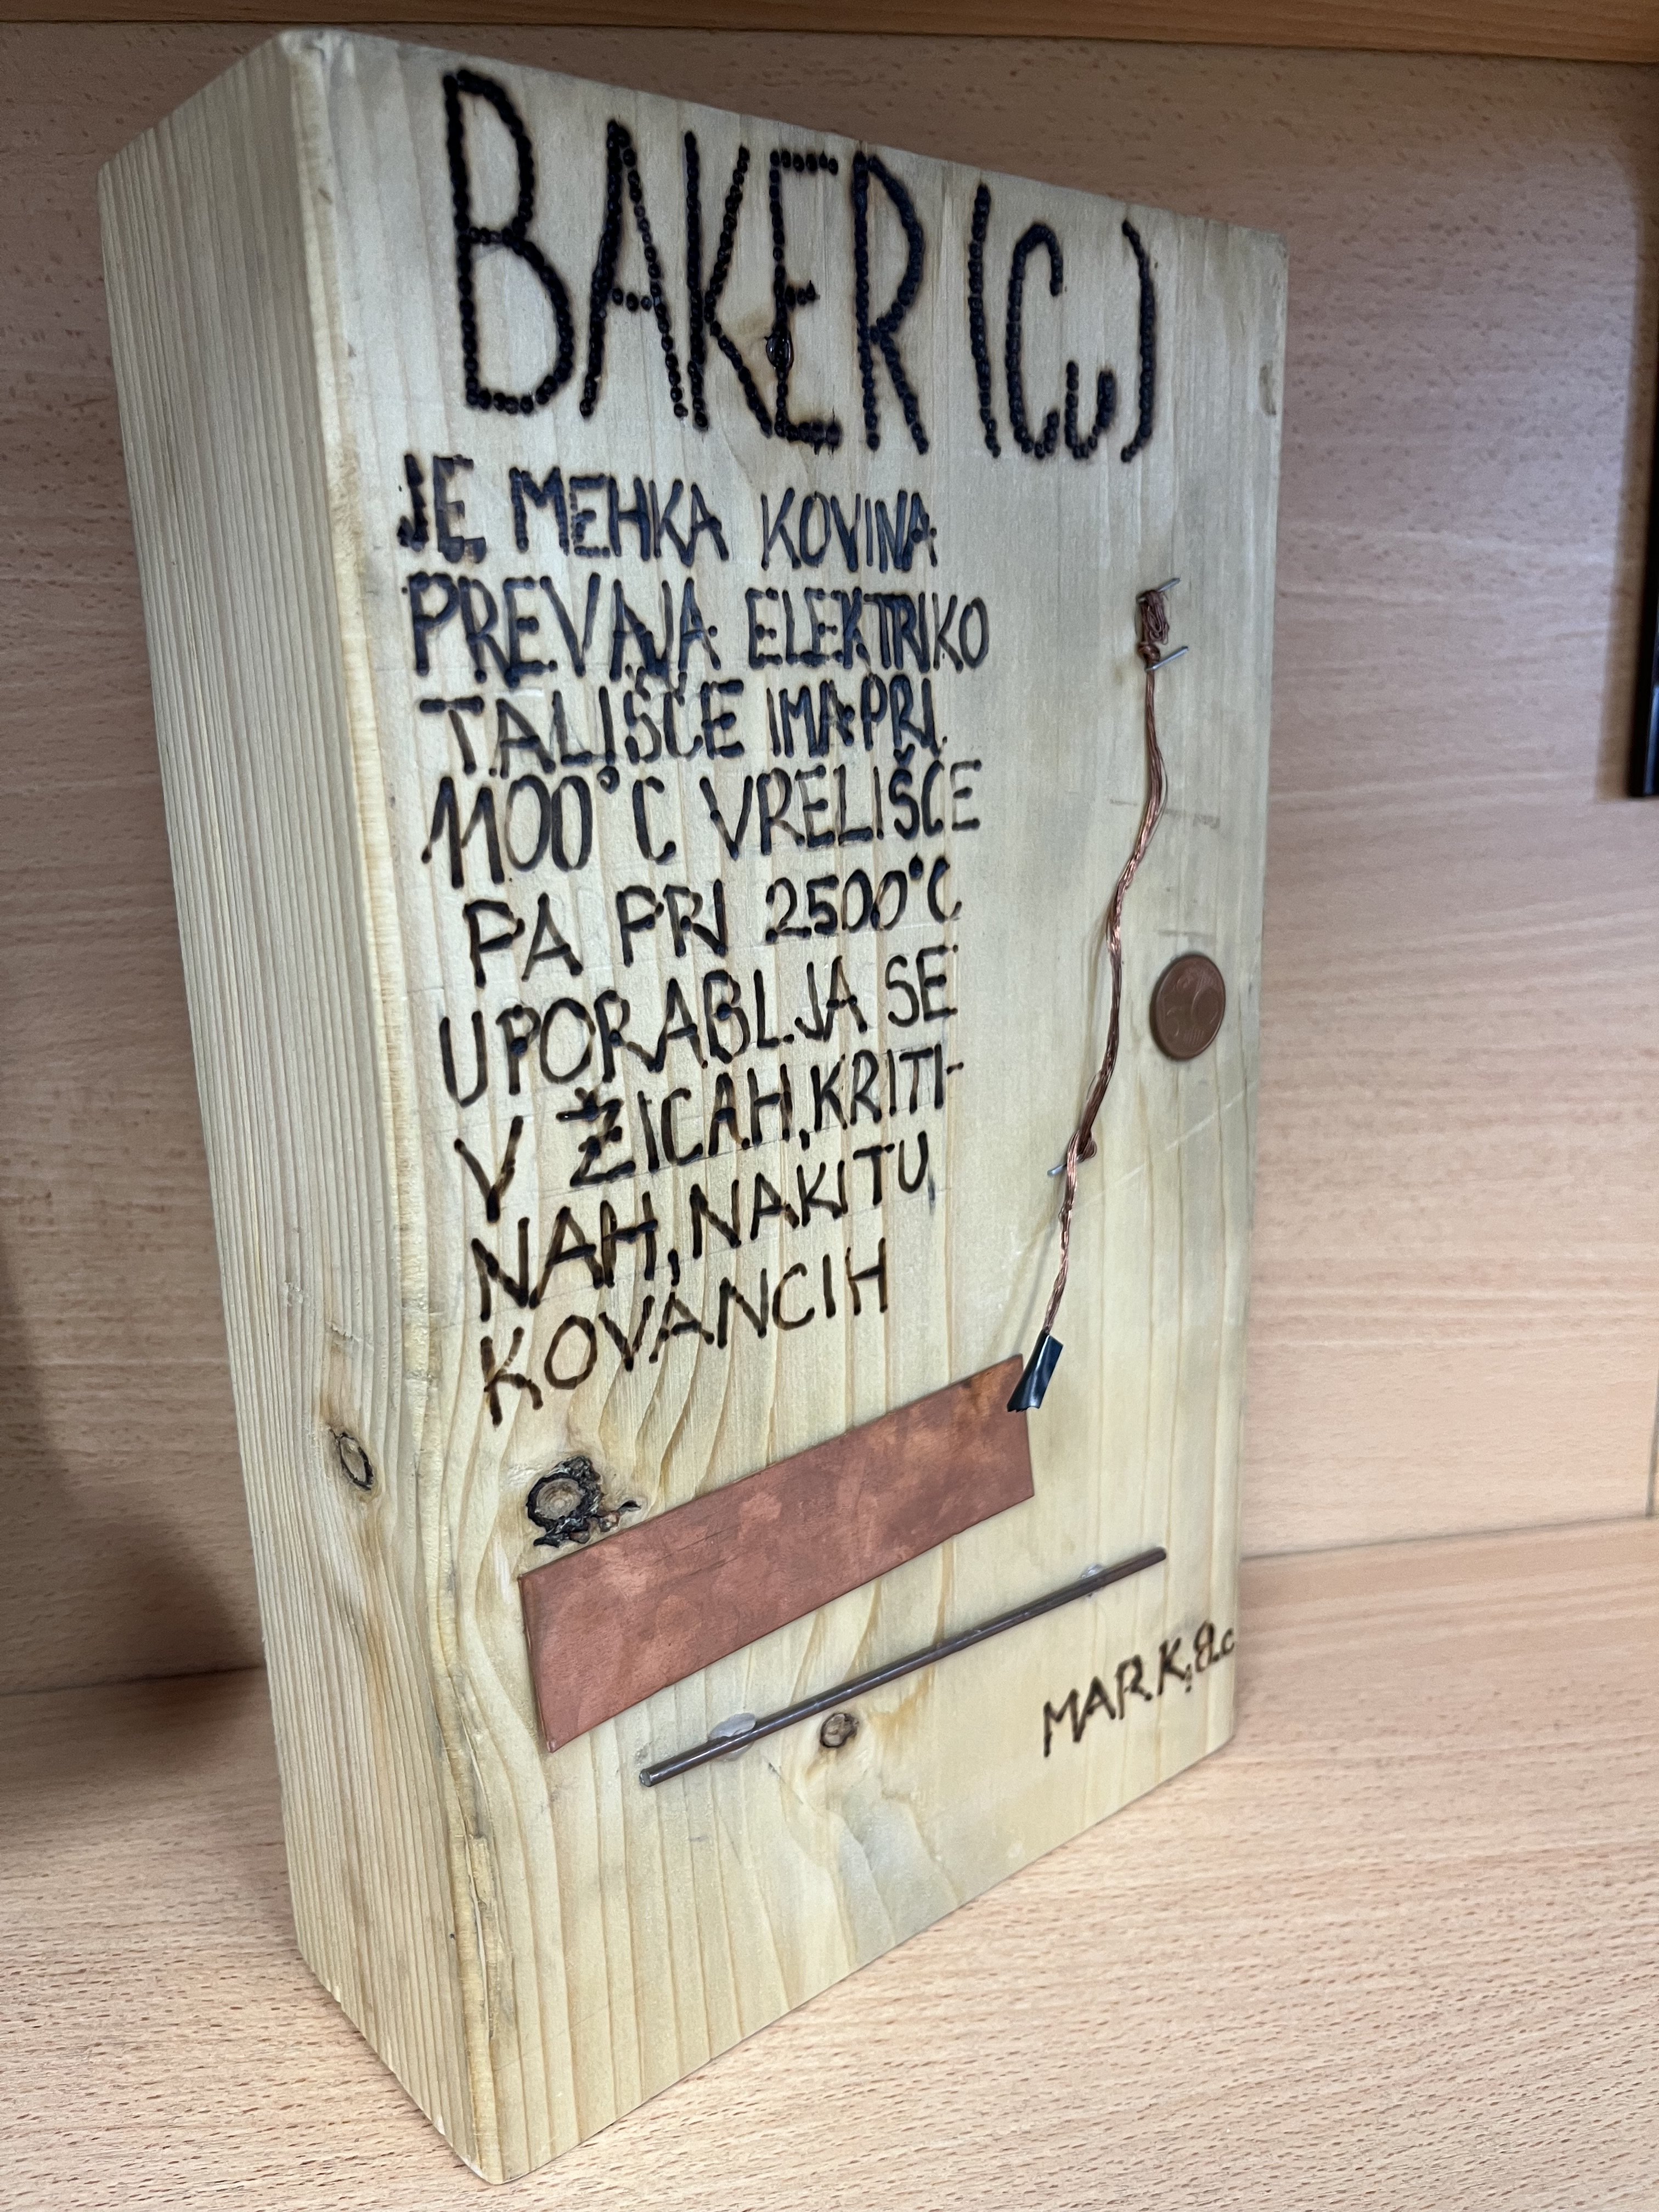 BAKER (Cu)
JE MEHKA KOVINA
PREVAJA ELEKTRIKO
TALIŠČE IMA PRI
1100°C VRELIŠČE
PA PRI 2500°C
UPORABLJA SE
V ŽICAH, KRITI-
NAH, NAKITU,
KOVANCIH
MARK, 8.c